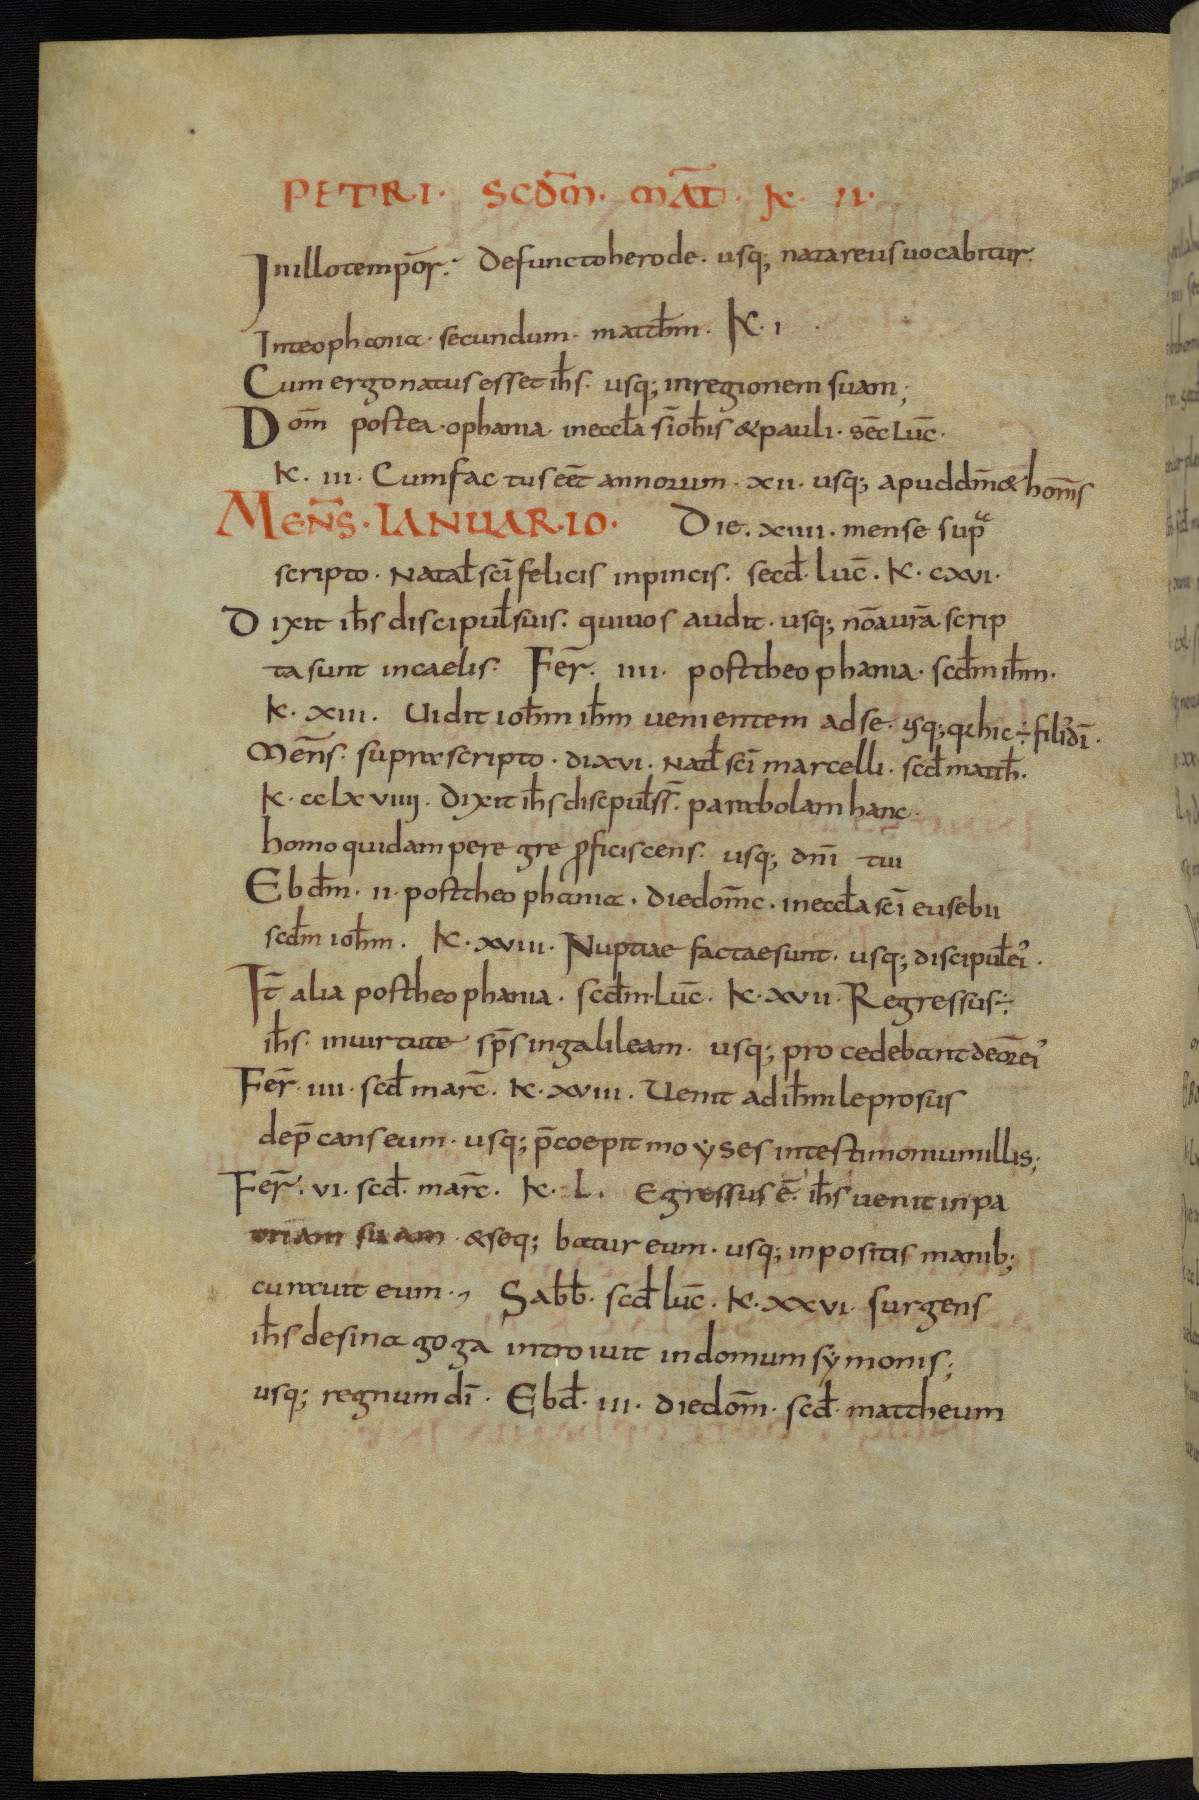 PETRI. SCD̄M. MAT̄. K. II.
Inillotemp̄or. Defunctoherode. usq; natareusuocabitur.
Inteophania. secundum. matth̄m. K. I
Cum ergo natus esset ih̄s. usq; inregionem suam;
Dom̄ postea.ophania. ineccƚa sīoh̄is & pauli. sēc Lūc.
K. III. Cumfactus eēt annorum. XII. usq; apuddm̄ & hom̄s
MEN̄S. IANUARIO. Die. XIIII. mense sup̄
scripto. Nataƚ scī felicis inpincis. secđ. Lūc. K. CXVI.
Dixit ih̄s discipuƚ suis. quiuos audit. usq; nōaurā scrip
ta sunt incaelis. Fer̄. IIII. posttheophania. scd̄m ih̄m.
K. XIII. Uidit ioh̄m ih̄m uenientem adse. usq; q̄hic ÷ fili dī.
Men̄s. suprascripto. dixvi. Naƚ scī marcelli. scđ matth̄.
K. cclxviiij. Dixit ih̄s discipuƚ s̄s. parabolam hanc.
homo quidam peregre p̄ficiscens. usq; dnī tui
Ebd̄m. II. posttheophania. diedom̄c. ineccƚa scī eusebii
scd̄m ioh̄m. K. XVIII. Nuptiae factaesunt. usq; discipuƚ ei'.
It̄ alia posttheophania. scd̄m. Lūc. K. XVII. Regressus ÷
ih̄s. inuirtute sp̄s ingalileam. usq; procedebant deōre ei'
Fer̄. IIII. scđ marc̄. K. XVIII. Uenit adih̄m leprosus
dep̄canseum. usq; p̄coepit moyses intestimoniumillis;
Fer̄. VI. scđ. marc̄. K. L. Egressus ē. ih̄s uenit inpa
triam suam. & seq; batur eum. usq; inpositis manib;
curauit eum. Sabb̄. scđ lūc. K. XXVI. surgens
ih̄s desinagoga introiuit indomum sẏmonis;
usq; regnum dī. Ebđ. III. diedom̄. scđ. mattheum